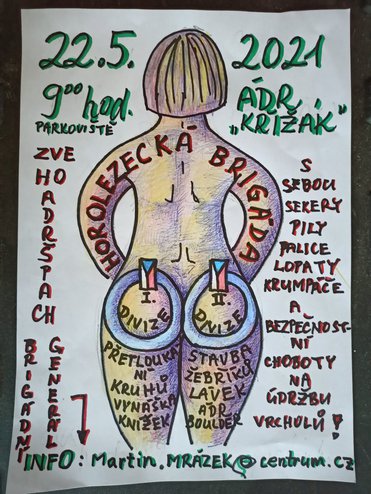 22.5. 2021
9⁰⁰ hod.
PARKOVIŠTĚ
ÁDR.
„KŘIŽÁK"
ZVE
HO
ADRŠPACH
HOROLEZECKÁ BRIGÁDA
S
SEBOU
SEKERY
PILY
PALICE
LOPATY
KRUMPÁČE
A
BEZPEČNOST-
NÍ
CHOBOTY
NA
ÚDRŽBU
VRCHULŮ!
I.
DIVIZE
II.
DIVIZE
PŘETLOUKÁ
NÍ
KRUHŮ
VYNÁŠKA
KNÍŽEK
STAVBA
ŽEBŘÍKŮ
LÁVEK
ADR
BOULDER
BRIGÁDNÍ
GENERÁL
INFO: Martin.MRÁZEK@centrum.cz